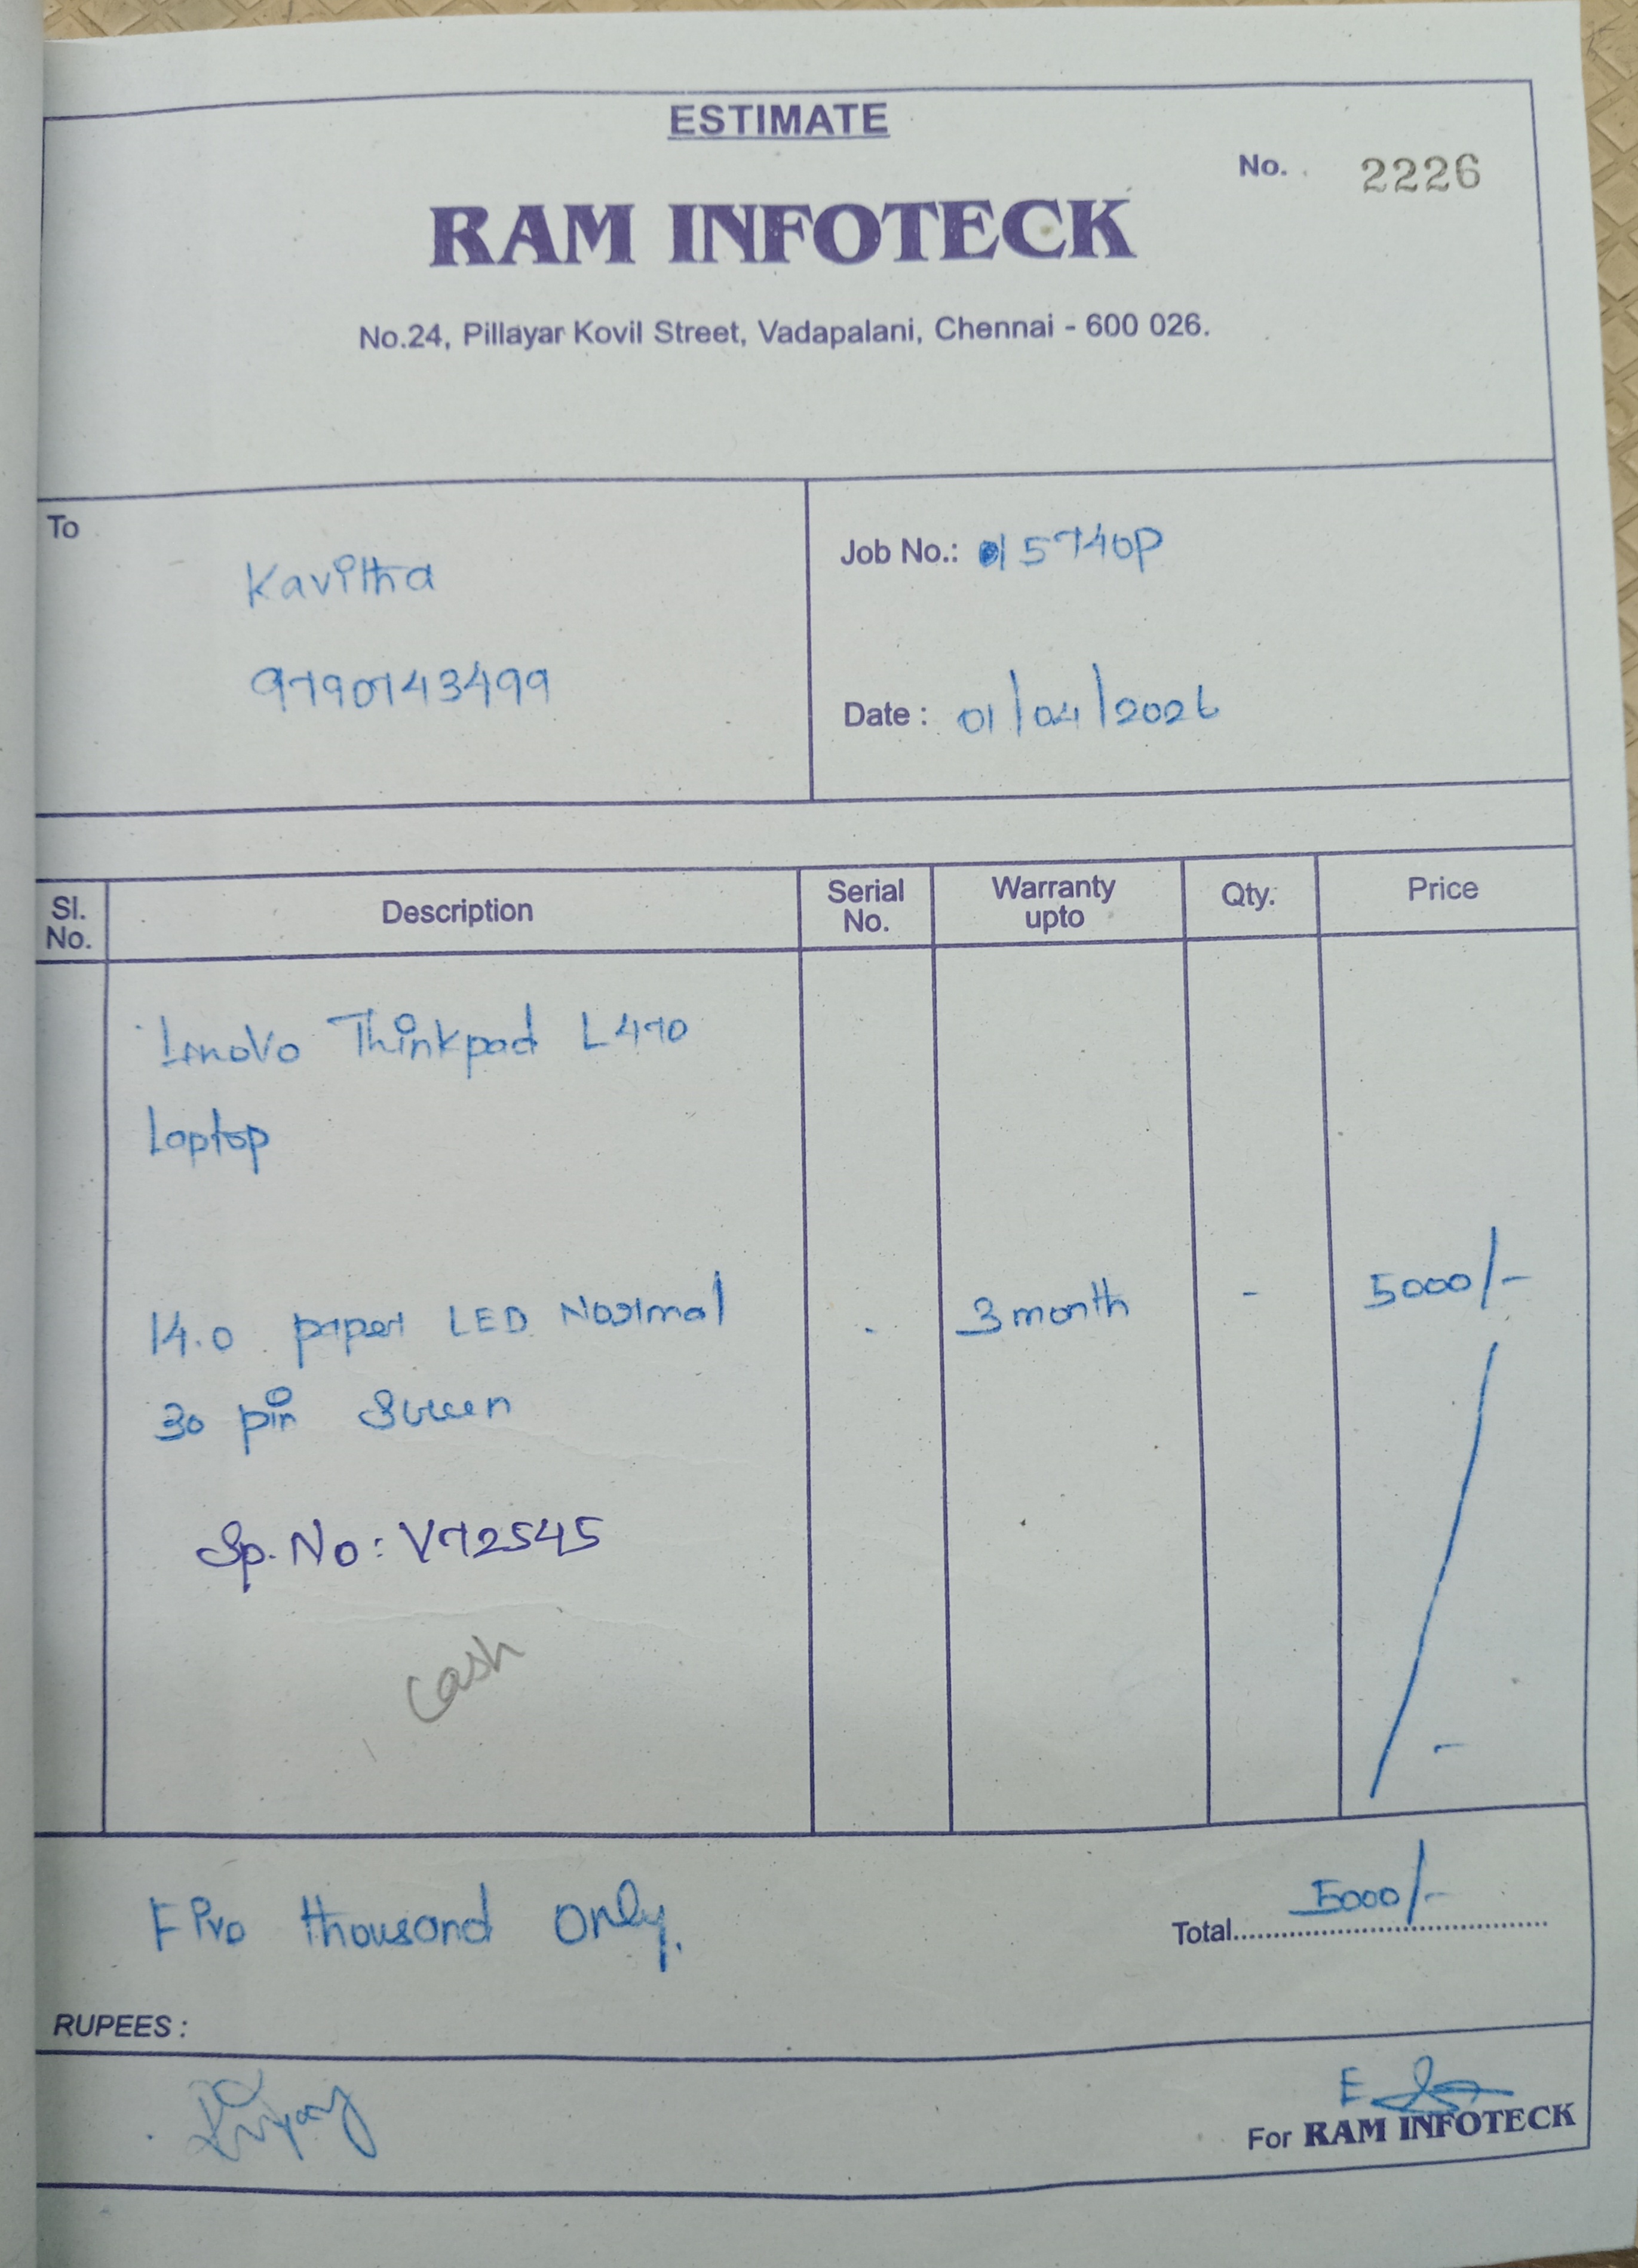 ESTIMATE
No. 2226
RAM INFOTECK
No.24, Pillayar Kovil Street, Vadapalani, Chennai - 600 026.
To
Kavitha
9790743499
Job No.: 015740P
Date : 01/04/2026
Sl. No. Description Serial No. Warranty upto Qty. Price
Lenovo Thinkpad L470
Laptop
14.0 paper LED Normal 3 month - 5000/-
30 pin Screen
Sp. No: V72545
Cash
Five thousand only.
Total 5000/-
RUPEES :
For RAM INFOTECK